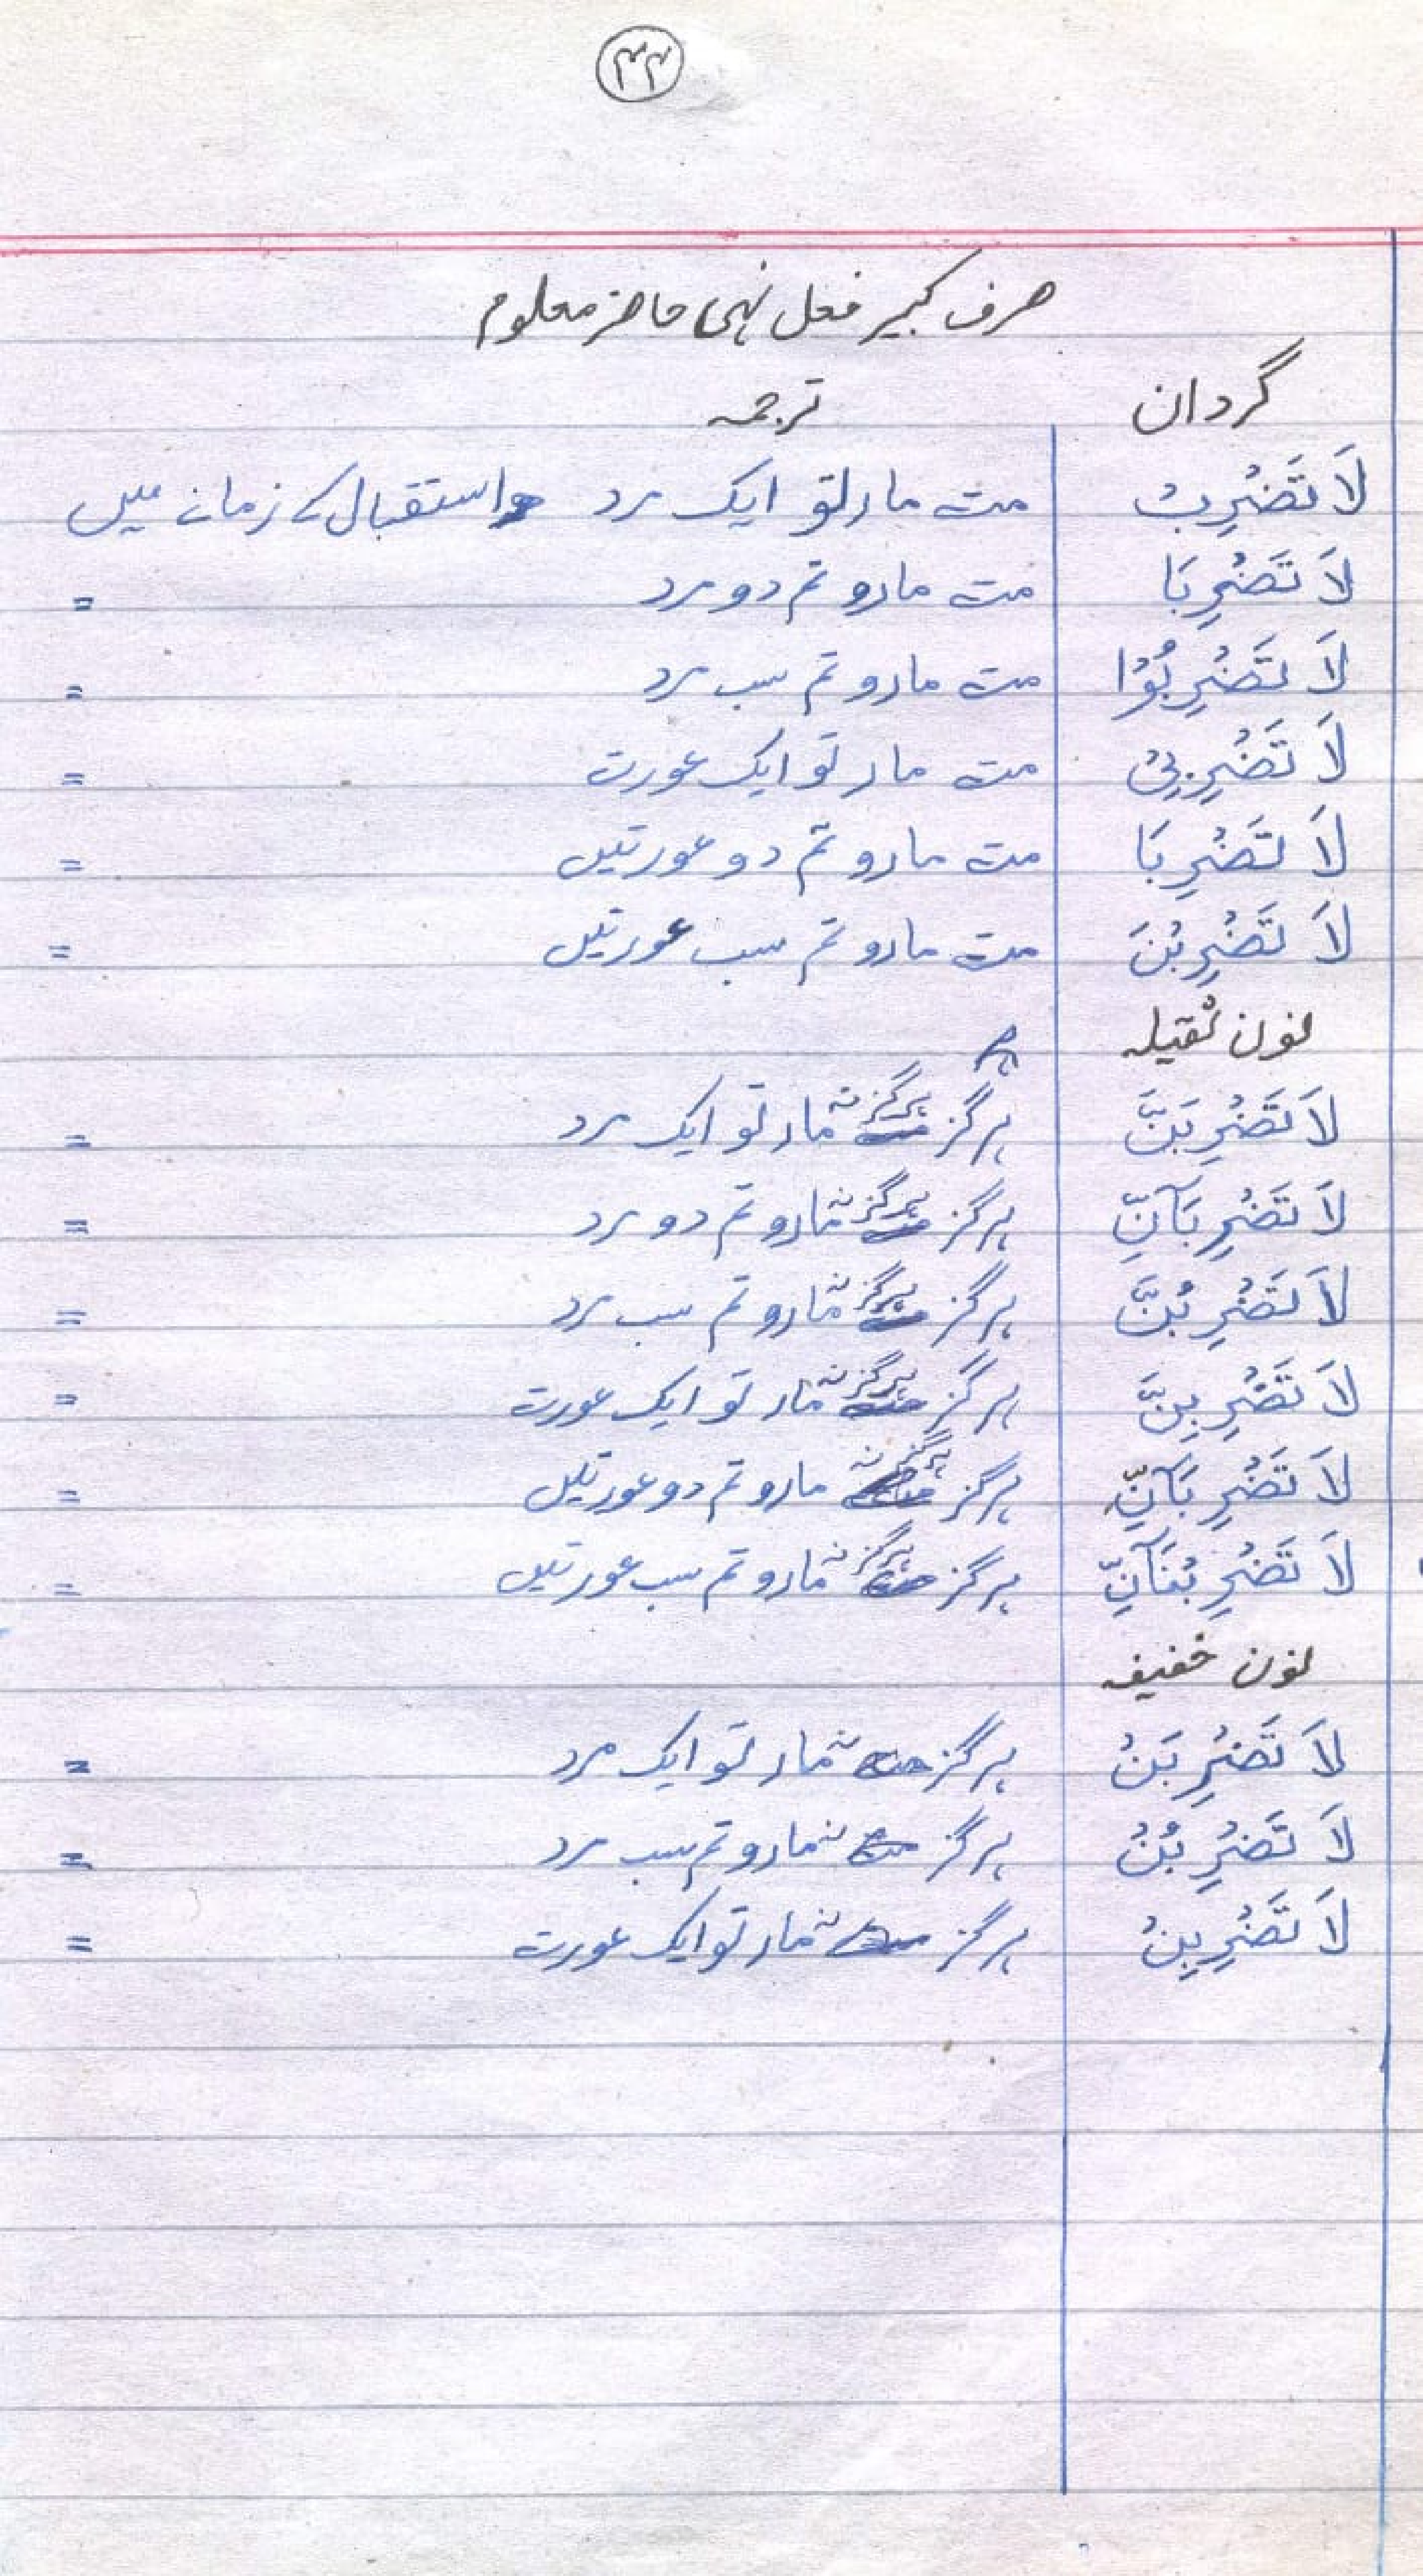 ۴۴
صرف کبیر فعل نہی حاضر معلوم
گردان ترجمہ
لَا تَضْرِبْ مت مار تو ایک مرد استقبال کے زمانہ میں
لَا تَضْرِبَا مت مارو تم دو مرد =
لَا تَضْرِبُوْا مت مارو تم سب مرد =
لَا تَضْرِبِیْ مت مار تو ایک عورت =
لَا تَضْرِبَا مت مارو تم دو عورتیں =
لَا تَضْرِبْنَ مت مارو تم سب عورتیں =
نون ثقیلہ
لَا تَضْرِبَنَّ ہرگز ہرگز نہ مار تو ایک مرد =
لَا تَضْرِبَآنِّ ہرگز ہرگز نہ مارو تم دو مرد =
لَا تَضْرِبُنَّ ہرگز ہرگز نہ مارو تم سب مرد =
لَا تَضْرِبِنَّ ہرگز ہرگز نہ مار تو ایک عورت =
لَا تَضْرِبَآنِّ ہرگز ہرگز نہ مارو تم دو عورتیں =
لَا تَضْرِبْنَآنِّ ہرگز ہرگز نہ مارو تم سب عورتیں =
نون خفیفہ
لَا تَضْرِبَنْ ہرگز نہ مار تو ایک مرد =
لَا تَضْرِبُنْ ہرگز نہ مارو تم سب مرد =
لَا تَضْرِبِنْ ہرگز نہ مار تو ایک عورت =